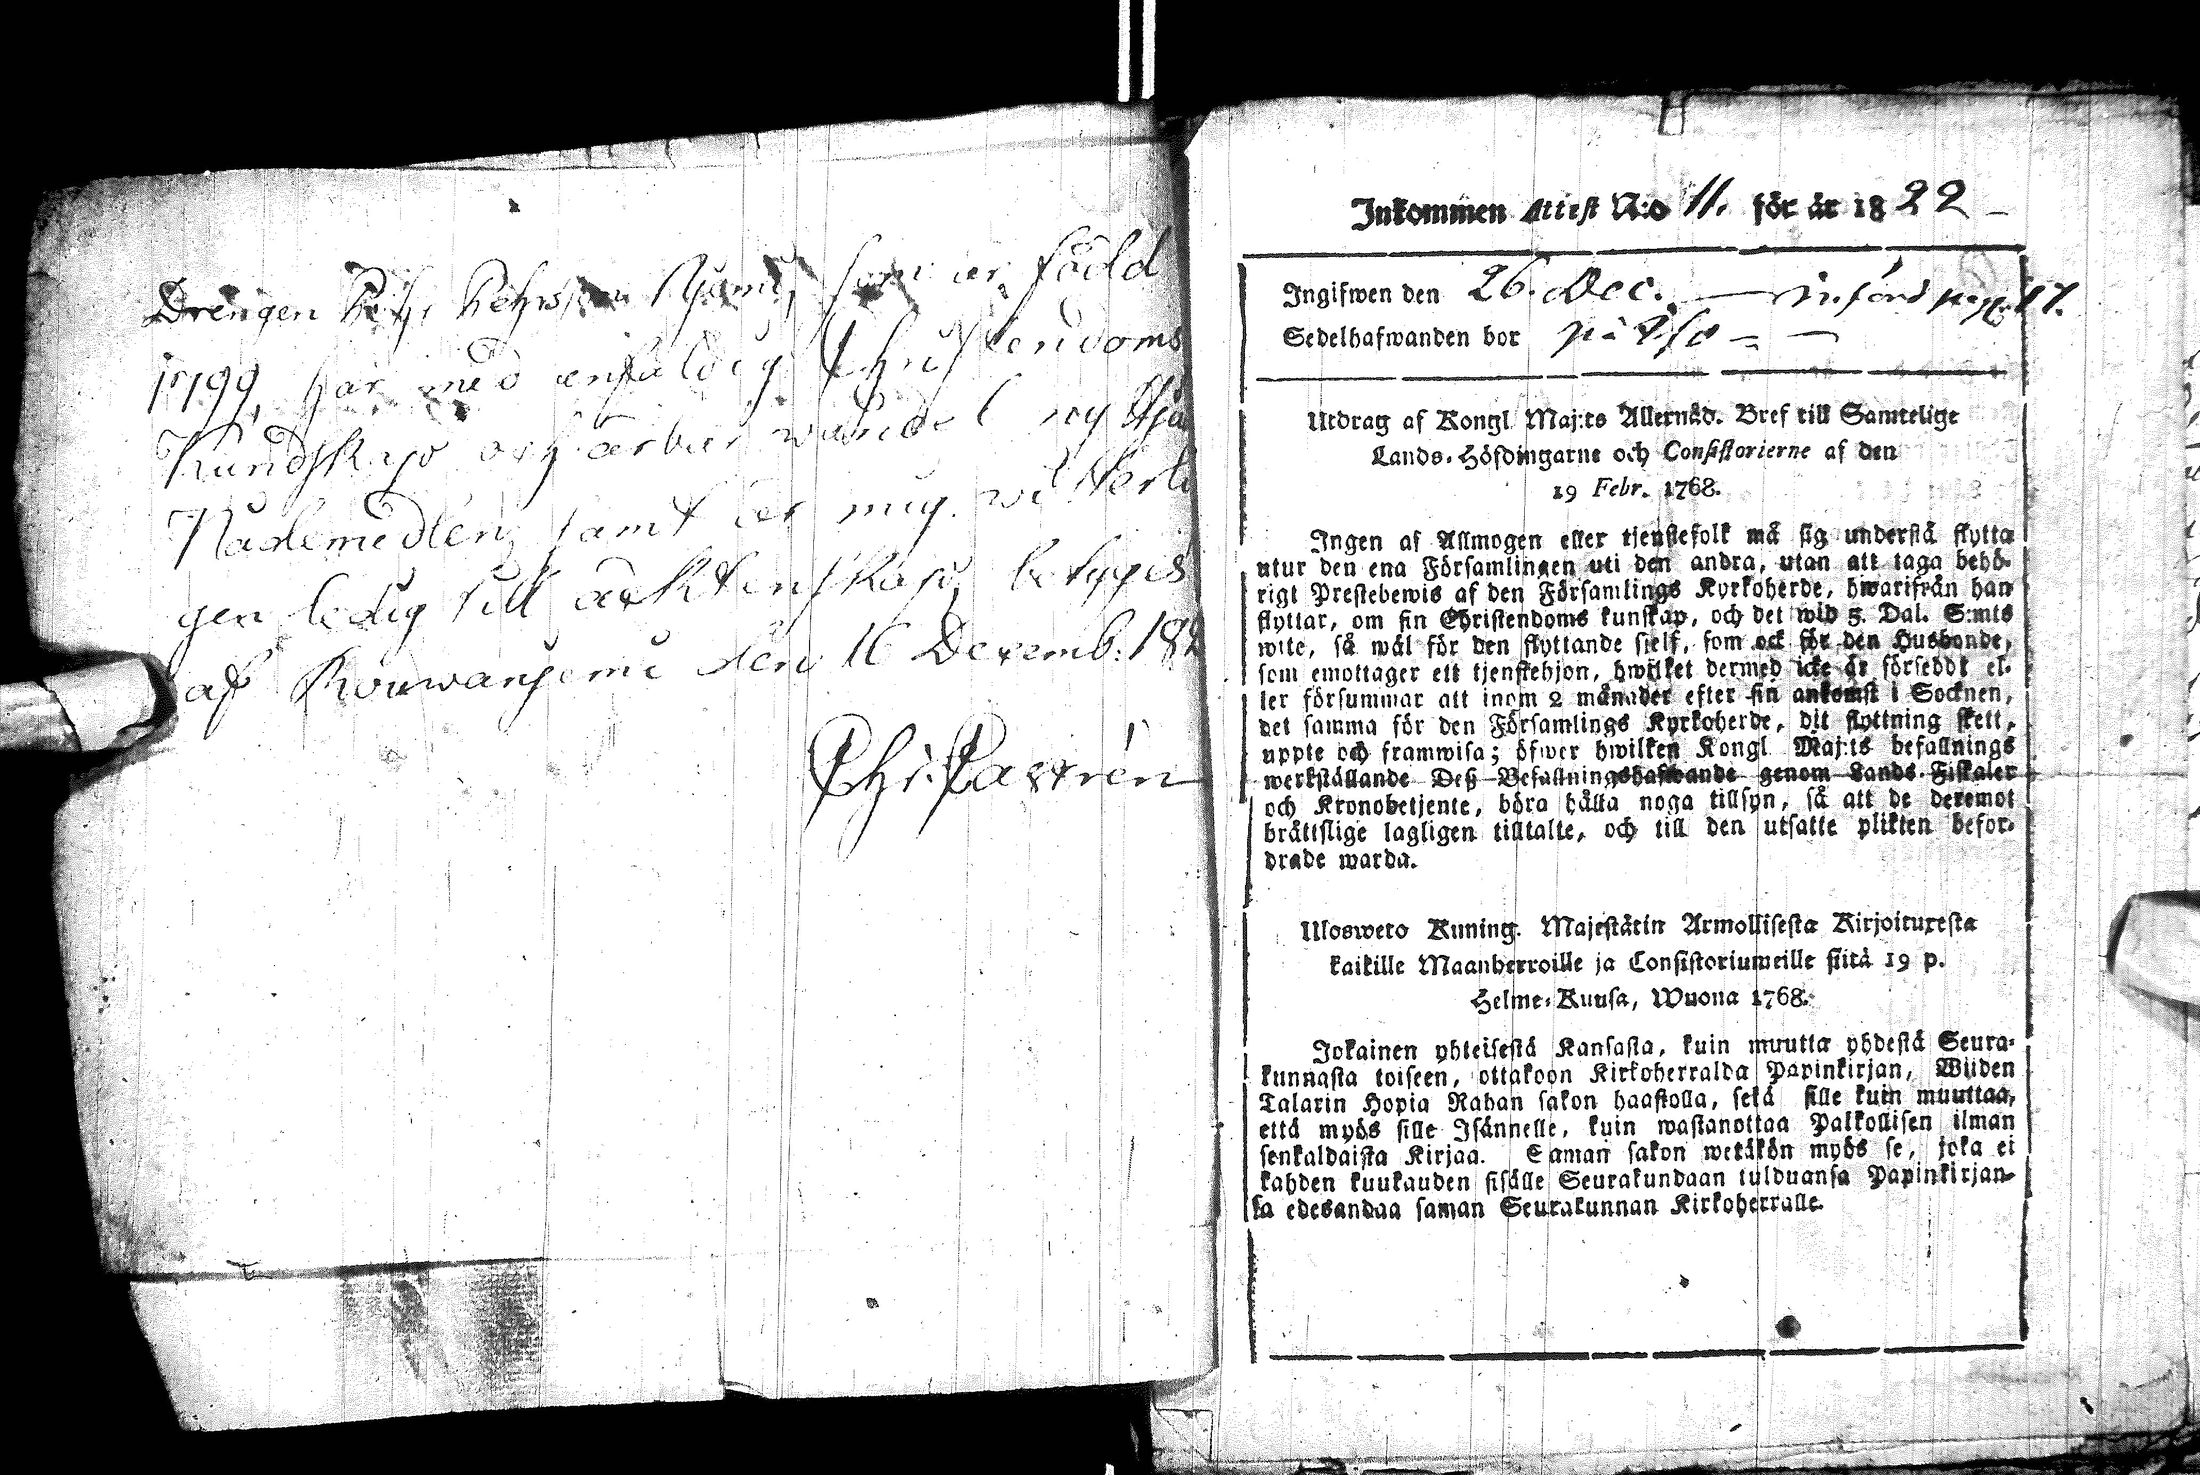 Drengen Pehr Pehrsson Njemi, som är född
1799, har med enfaldig Christendoms
Kundskap och ärbar wandel nyttja
Nademedlen, samt är mig witterli
gen ledig till äcktenskap, betyges
af Rouwanjemi den 16 Decemb. 182
Chr. Castrén
Inkommen Attest N:o 11. för år 1822
Ingifwen den 26. Dec. — införd pag. 17.
Sedelhafwanden bor
Utdrag af Kongl Maj:ts Allernåd. Bref till Samtelige
Lands-Höfdingarne och Consistorierne af den
19 Febr. 1768.
Ingen af Allmogen eller tjenstefolk må sig understå flytta
utur den ena Församlingen uti den andra, utan att taga behö-
rigt Prestebewis af den Församlings Kyrkoherde, hwarifrån han
flyttar, om sin Christendoms kunskap, och det wid 5. Dal. S:mts
wite, så wäl för den flyttande sjelf, som ock för den Husbonde,
som emottager ett tjenstehjon, hwilket dermed icke är försedt el-
ler försummar att inom 2 månader efter sin ankomst i Socknen,
det samma för den Församlings Kyrkoherde, dit flyttning skett,
uppte och framwisa; öfwer hwilken Kongl Maj:ts befallnings
werkställande Deß Befallningshafwande genom Lands-Fiskaler
och Kronobetjente, böra hålla noga tillsyn, så att de deremot
bråttslige lagligen tilltalte, och till den utsatte plikten befor-
drade warda.
Ulosweto Kuning. Majestätin Armollisesta Kirjoituxesta
kaikille Maanherroille ja Consistoriumeille siitä 19 p.
Helme-Kuusa, Wuona 1768.
Jokainen yhteisestä Kansasta, kuin muutta yhdestä Seura-
kunnasta toiseen, ottakoon Kirkoherralda Papinkirjan, Wiiden
Talarin Hopia Rahan sakon haastolla, sekä sille kuin muuttaa,
että myös sille Isännelle, kuin wastanottaa Palkollisen ilman
senkaldaista Kirjaa. Saman sakon wetäkön myös se, joka ei
kahden kuukauden sisälle Seurakundaan tulduansa Papinkirjan-
sa edesandaa saman Seurakunnan Kirkoherralle.